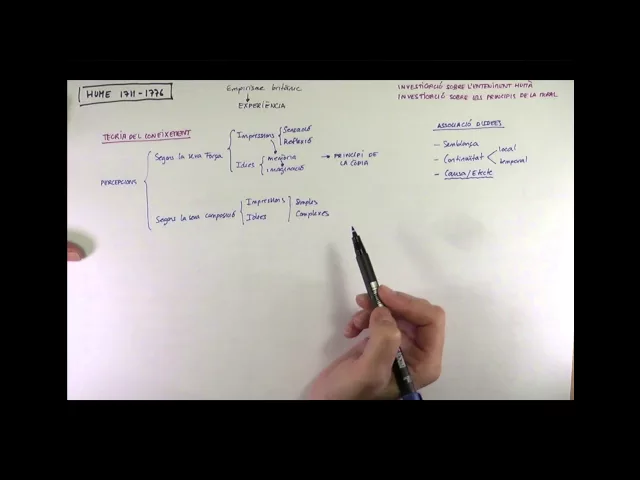 HUME 1711-1776
Empirisme britànic
EXPERIÈNCIA
INVESTIGACIÓ SOBRE L'ENTENIMENT HUMÀ
INVESTIGACIÓ SOBRE ELS PRINCIPIS DE LA MORAL
TEORIA DEL CONEIXEMENT
PERCEPCIONS
Segons la seva Força
Impressions
Sensació
Reflexió
Idees
memòria
imaginació
PRINCIPI DE
LA CÒPIA
Segons la seva composició
Impressions
Idees
Simples
Complexes
ASSOCIACIÓ D'IDEES
- Semblança
- Continuïtat
local
temporal
- Causa/Efecte